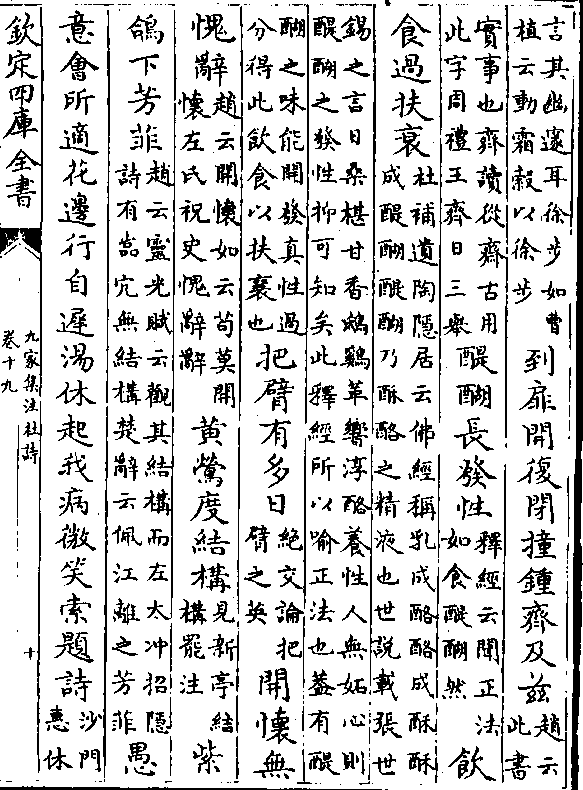 言其幽邃耳徐步如曹植云動霜縠以徐步到扉開復閉撞鍾齊及兹趙云此書
實事也齊讀從齋古用此字周禮王齊日三舉醍醐長發性釋經云聞正法如食醍醐然飲
食過扶衰杜補遺陶隱居云佛經稱乳成酪酪成酥酥成醍醐醍醐乃酥酪之精液也世説載張世
錫之言曰桑椹甘香鴟鴞革響淳酪養性人無妬心則醍醐之發性抑可知矣此釋經所以喻正法也葢有醍
醐之味能開發真性過分得此飲食以扶衰也把臂有多日絶交論把臂之英開懷無
愧辭趙云開懷如云荀莫開懷左氏祝史愧辭辭黄鶯度結構見新亭結構罷注紫
鴿下芳菲趙云靈光賦云觀其結構而左太冲招隱詩有嵓穴無結構楚辭云佩江離之芳菲愚
意會所適花邊行自遲湯休起我病微笑索題詩沙門惠休
欽定四庫全書
九家集注杜詩
卷十九
十